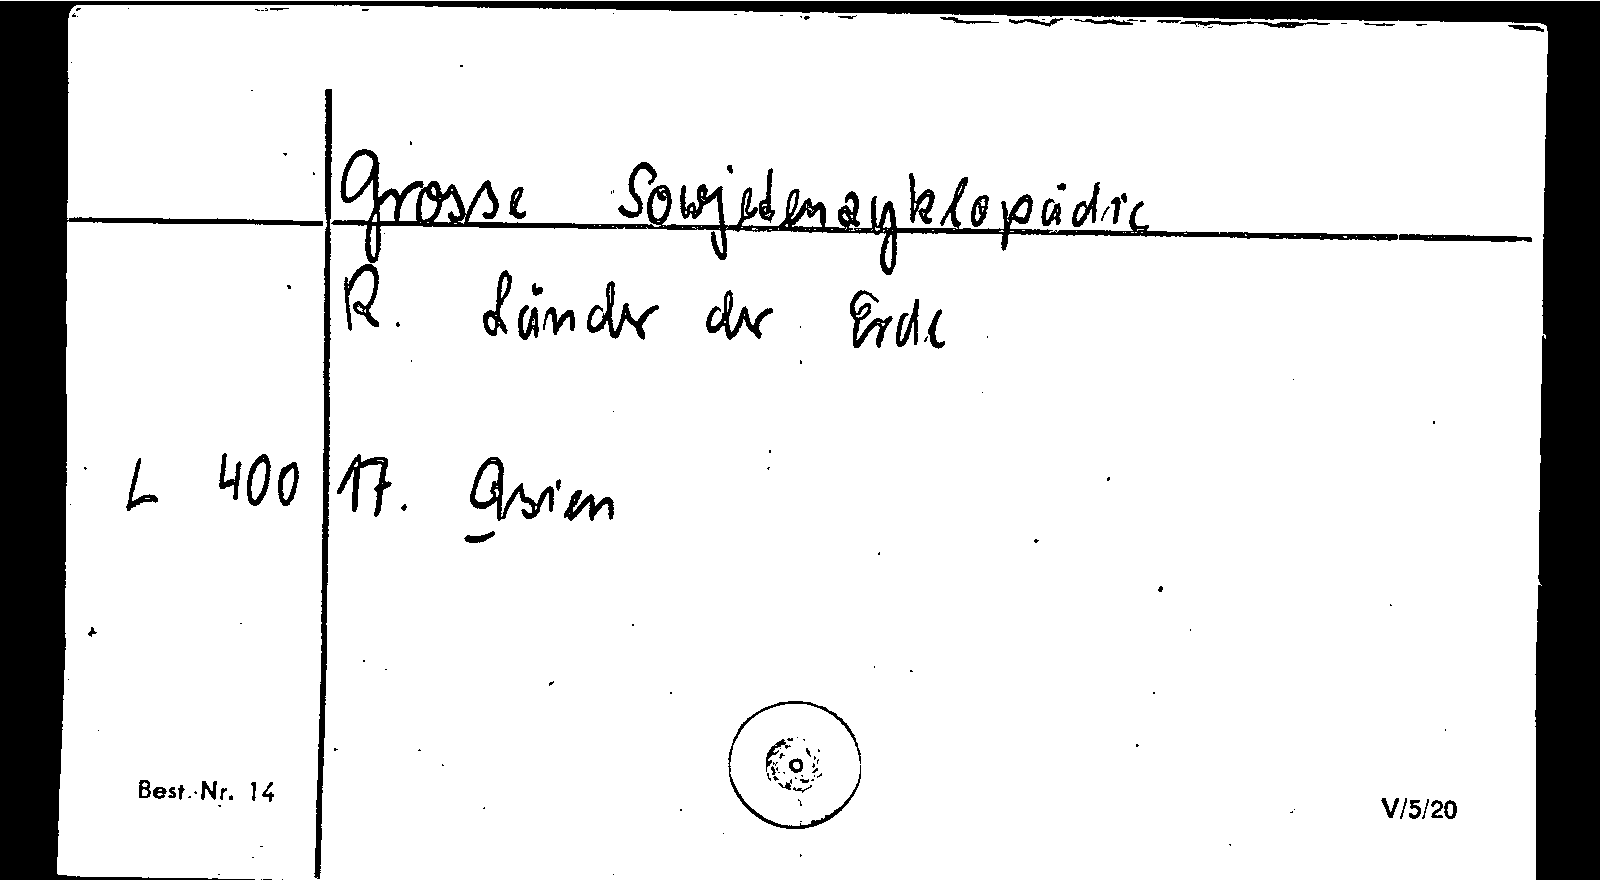 Grosse Sowjetenzyklopädie
R. Länder der Erde
L 400 17. Asien
Best.-Nr. 14
V/5/20